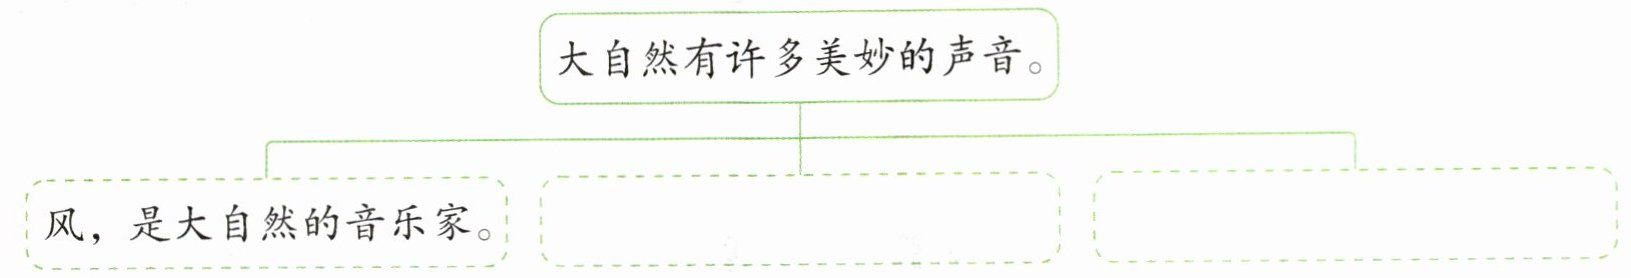 大自然有许多美妙的声音。
风，是大自然的音乐家。